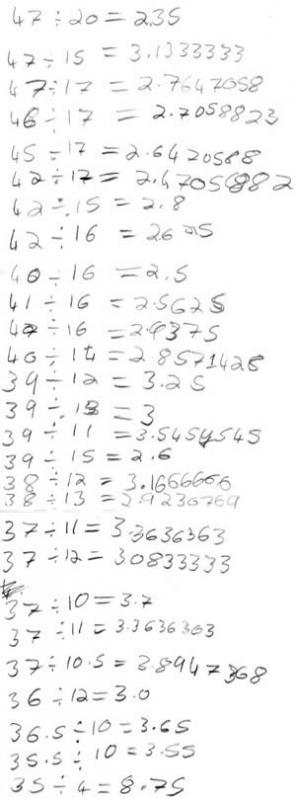 47 ÷ 20 = 2.35
47 ÷ 15 = 3.1333333
47 ÷ 17 = 2.7647058
46 ÷ 17 = 2.7058823
45 ÷ 17 = 2.6470588
42 ÷ 17 = 2.4705882
42 ÷ 15 = 2.8
42 ÷ 16 = 2.625
40 ÷ 16 = 2.5
41 ÷ 16 = 2.5625
47 ÷ 16 = 2.9375
40 ÷ 14 = 2.8571428
39 ÷ 12 = 3.25
39 ÷ 13 = 3
39 ÷ 11 = 3.5454545
39 ÷ 15 = 2.6
38 ÷ 12 = 3.1666666
38 ÷ 13 = 2.9230769
37 ÷ 11 = 3.3636363
37 ÷ 12 = 3.0833333
37 ÷ 10 = 3.7
37 ÷ 11 = 3.3636363
37 ÷ 10.5 = 3.8947368
36 ÷ 12 = 3.0
36.5 ÷ 10 = 3.65
35.5 ÷ 10 = 3.55
35 ÷ 4 = 8.75